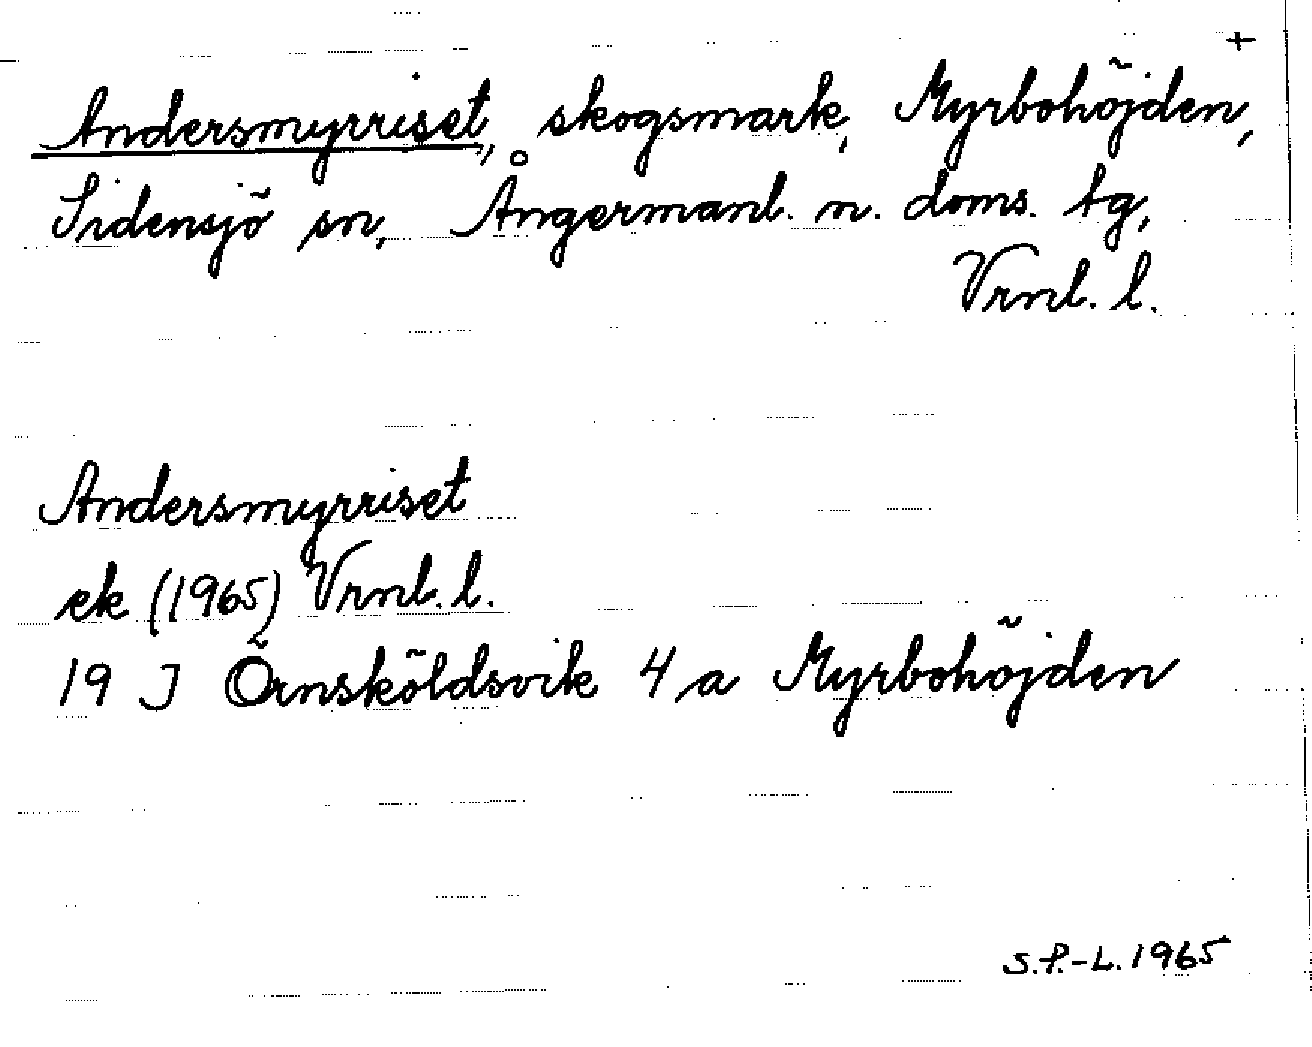 +
Andersmyrriset, skogsmark, Myrbohöjden,
Sidensjö sn, Ångermanl. n. doms. tg,
Vrnl. l.
Andersmyrriset
ek (1965) Vrnl. l.
19 J Örnsköldsvik 4 a Myrbohöjden
S.P.-L. 1965